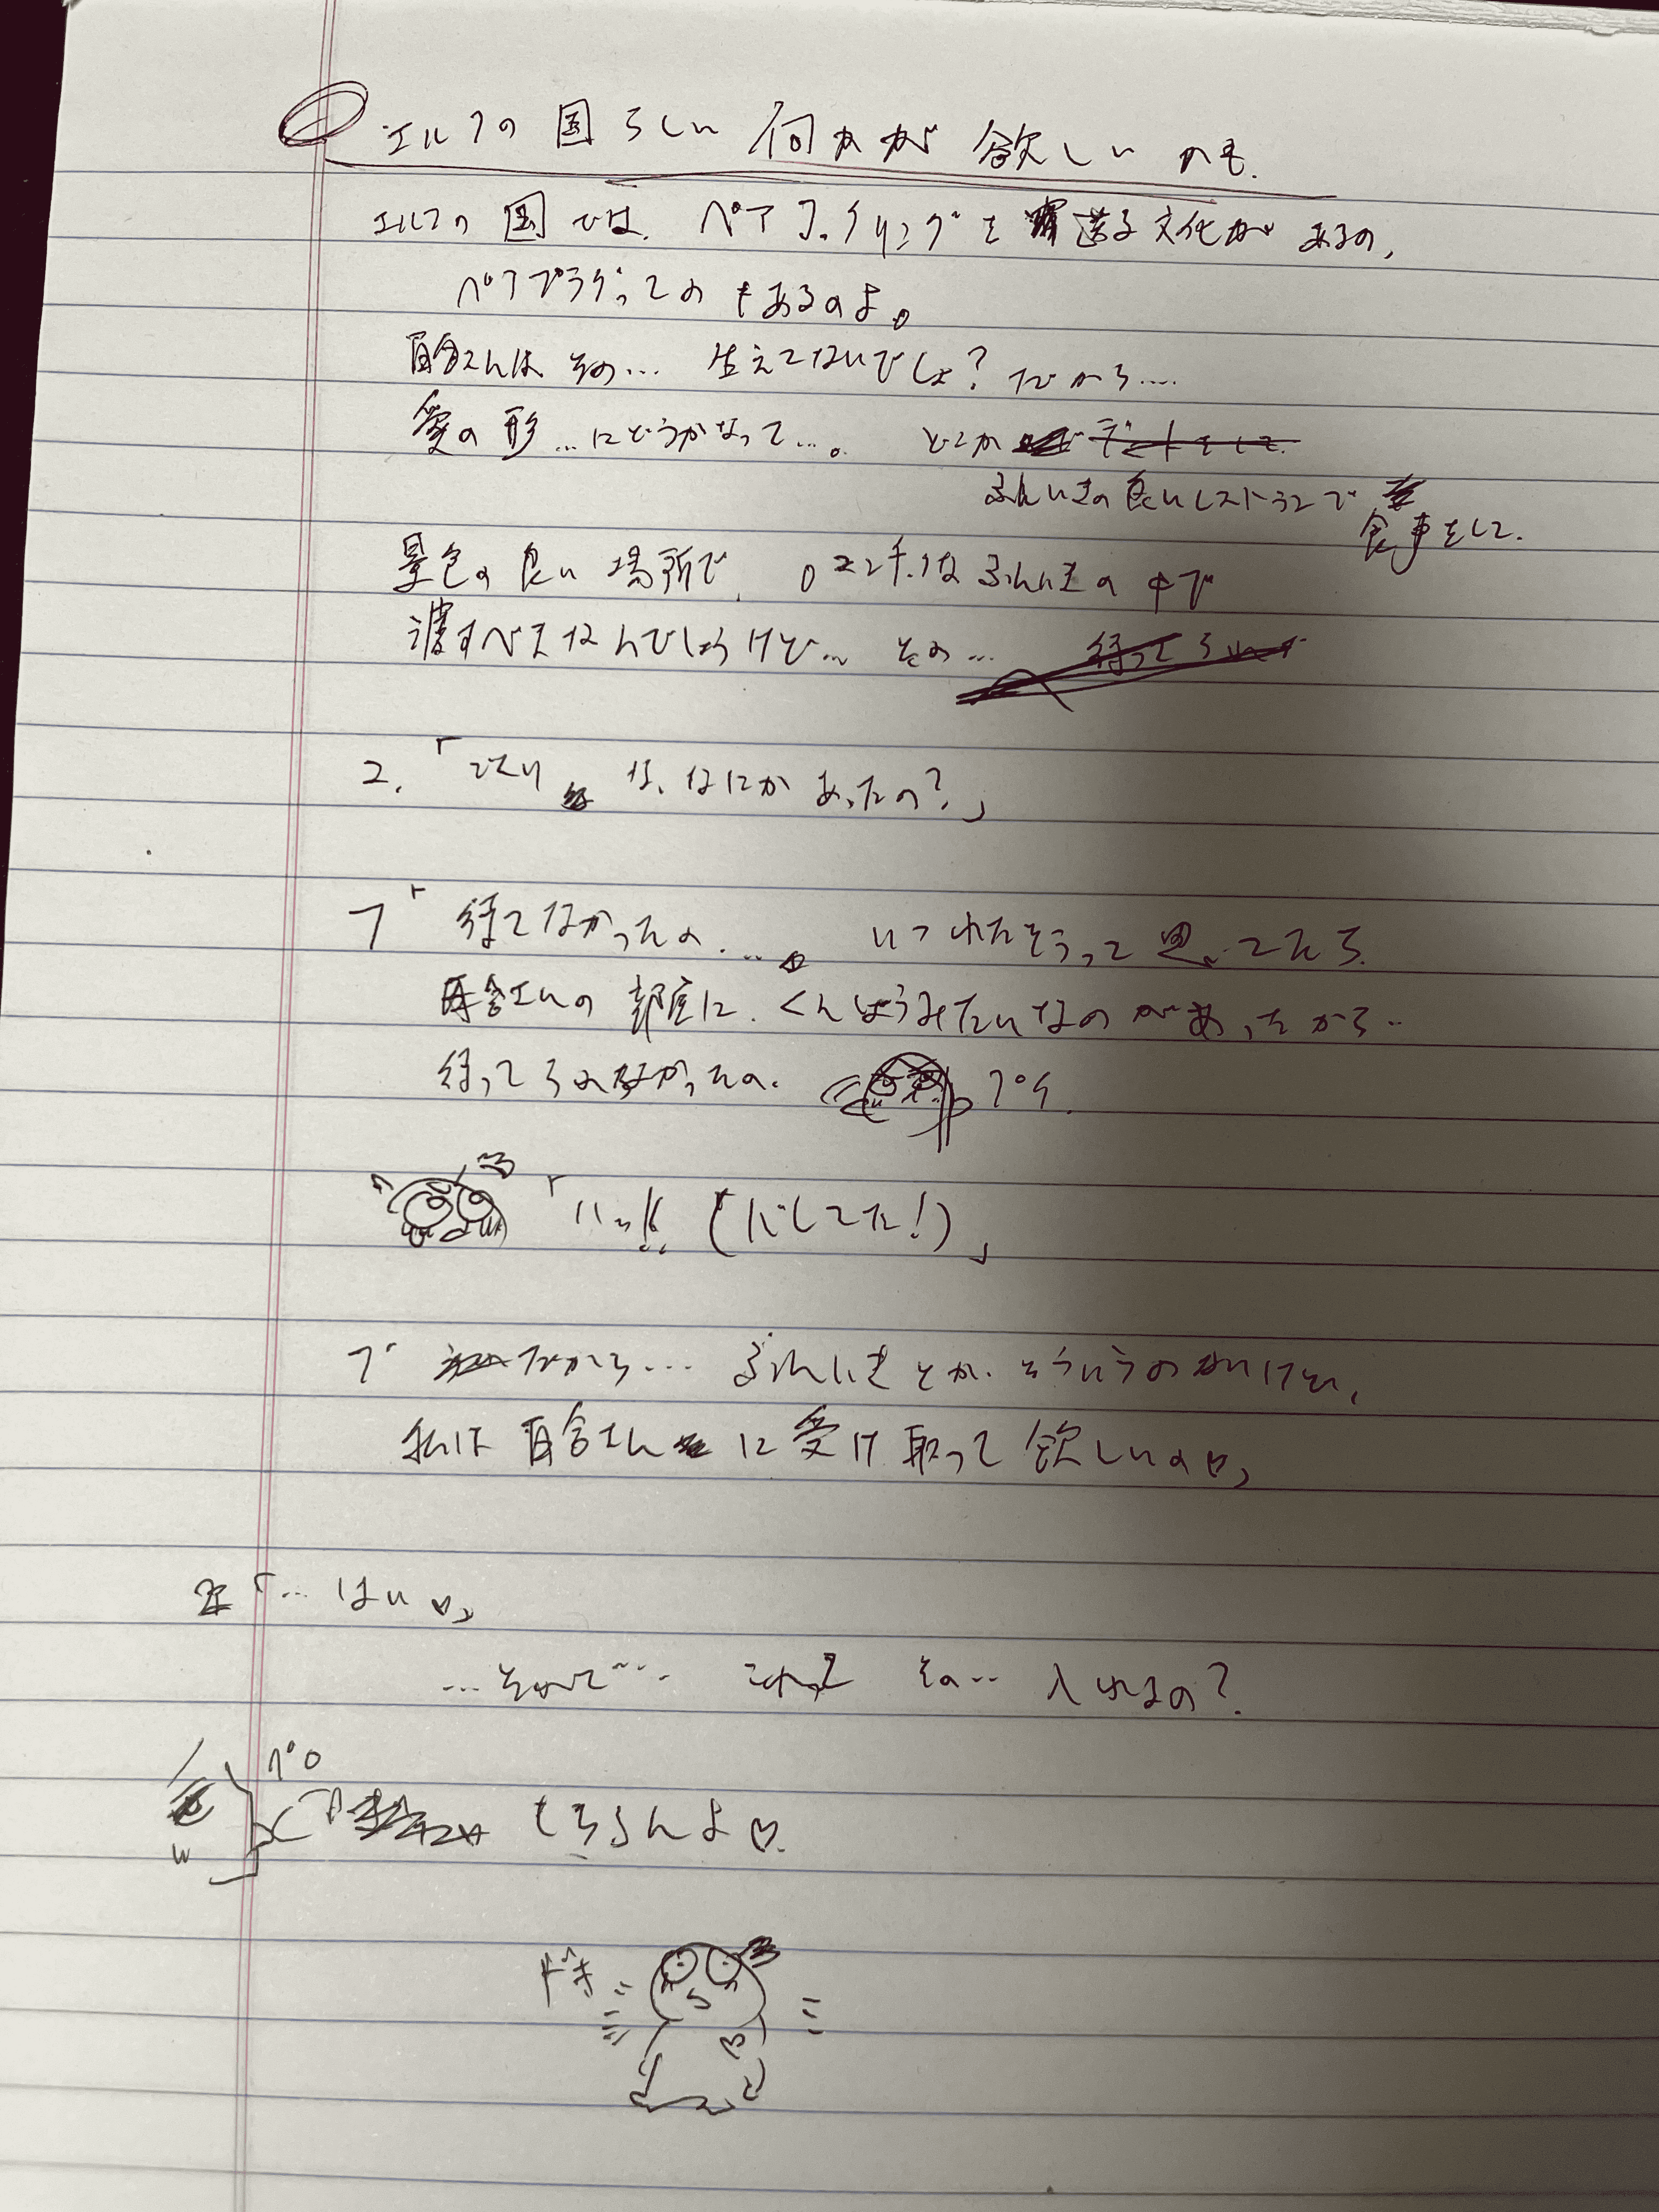 エルフの国らしい何かが欲しいかも.
エルフの国では、ペア リングを 送る文化があるの、
ペアプラグってのもあるのよ。
百合さんは その… 生えてないでしょ? だから….
愛の形…にどうかなって…。 どこか
ふんいきの良いレストランで
食事をして.
景色の良い場所で、ロマンチックなふんいきの中で
渡すべきなんでしょうけど… その…
「 な、なにかあったの?」
フ「待てなかったの…。 いつわたそうって思ってたら
百合さんの部屋に、くんしょうみたいなのがあったから…
待ってられなかったの.
「ハッ!! (だしてた!)」
フ「だから… ふんいきとか、そういうの いけど、
私は百合さんに受け取って欲しいの♡」
「… はい♡」
… これって その… 入れるの?
ペロ
もちろんよ♡.
ドキ